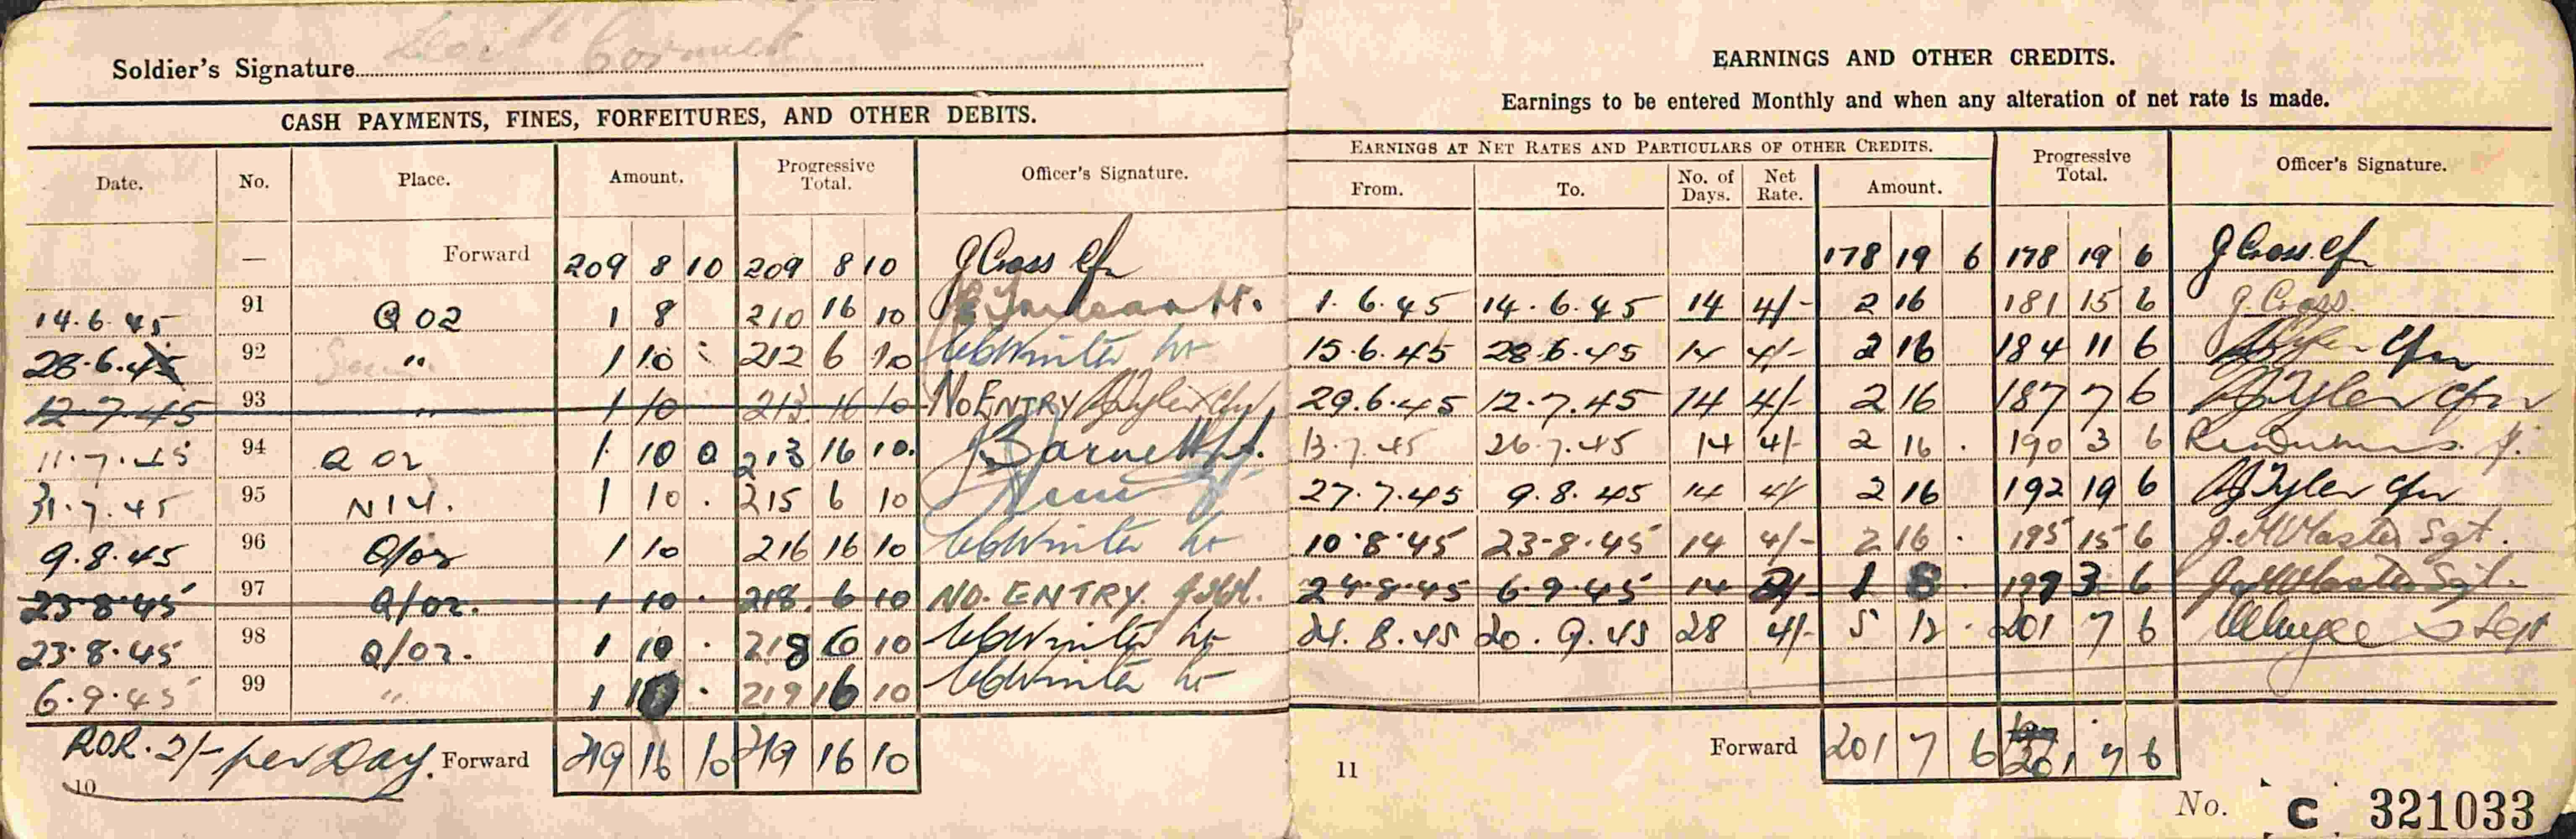 Soldier's Signature
CASH PAYMENTS, FINES, FORFEITURES, AND OTHER DEBITS.
Date. No. Place. Amount. Progressive Total. Officer's Signature.
— Forward 209 8 10 209 8 10 J Cross Cfn
14.6.45 91 Q 02 1 8 210 16 10
28.6.45 92 " 1 10 212 6 10 Winter Lt
12-7-45 93 " 1 10 213 16 10 NO ENTRY J Tyler Cfn
11.7.45 94 Q 02 1 10 0 213 16 10. Barnett Lt.
31.7.45 95 N14. 1 10 . 215 6 10
9.8.45 96 Q/02 1 10 216 16 10 Winter Lt
23.8.45 97 Q/02. 1 10 . 218. 6 10 NO. ENTRY.
23.8.45 98 Q/02. 1 10 . 218 6 10 Winter Lt
6.9.45 99 " 1 10 . 219 16 10 Winter Lt
ROR. 2/- per Day. Forward 219 16 10 219 16 10
10
EARNINGS AND OTHER CREDITS.
Earnings to be entered Monthly and when any alteration of net rate is made.
EARNINGS AT NET RATES AND PARTICULARS OF OTHER CREDITS. Progressive Total. Officer's Signature.
From. To. No. of Days. Net Rate. Amount.
178 19 6 178 19 6 J Cross Cfn
1.6.45 14.6.45 14 4/- 2 16 181 15 6 J. Cross.
15.6.45 28.6.45 14 4/- 2 16 184 11 6 Cfn
29.6.45 12.7.45 14 4/- 2 16 187 7 6 J Tyler Cfn
13.7.45 26.7.45 14 4/- 2 16 . 190 3 6
27.7.45 9.8.45 14 4/- 2 16 192 19 6 J Tyler Cfn
10.8.45 23.8.45 14 4/- 2 16 . 195 15 6 J. McMaster Sgt.
24.8.45 6.9.45 14 2/- 1 8 . 197 3 6 J. McMaster Sgt.
24.8.45 20.9.45 28 4/- 5 12 . 201 7 6
Forward 201 7 6 201 7 6
11
No. C 321033